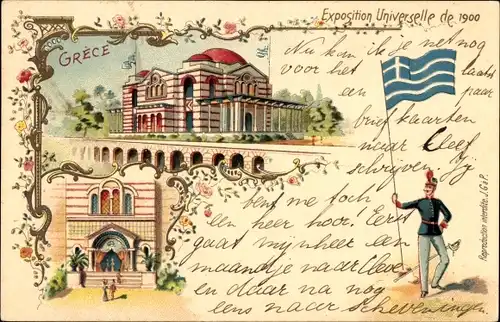 Exposition Universelle de 1900
GRÈCE
Nu kan ik je net nog
voor het laatst
een paar
briefkaarten
naar Cleef
schrijven. Jij
bent me toch
een heer hoor! Eerst
gaat mijnheer een
maandje naar Cleve
en daar na nog
eens naar Scheveningen.
Reproduction interdite. J.G.&P.